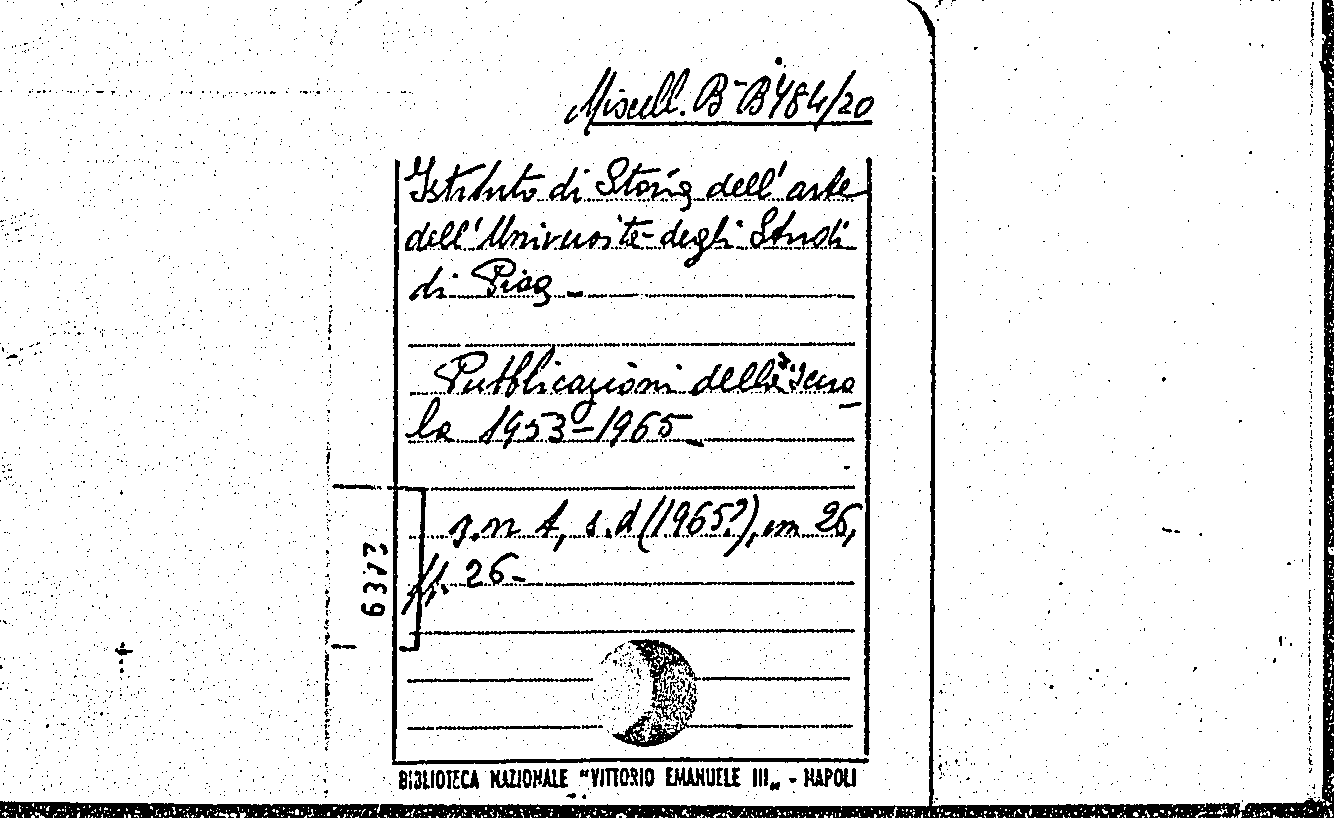 Miscell. B-B 484/20
Istituto di Storia dell'arte
dell'Università degli Studi
di Pisa -
Pubblicazioni della Scuo
la 1953-1965_
s.n t, s.d (1965?), in 26,
ff. 26-
6377
BIBLIOTECA NAZIONALE "VITTORIO EMANUELE III„ - NAPOLI